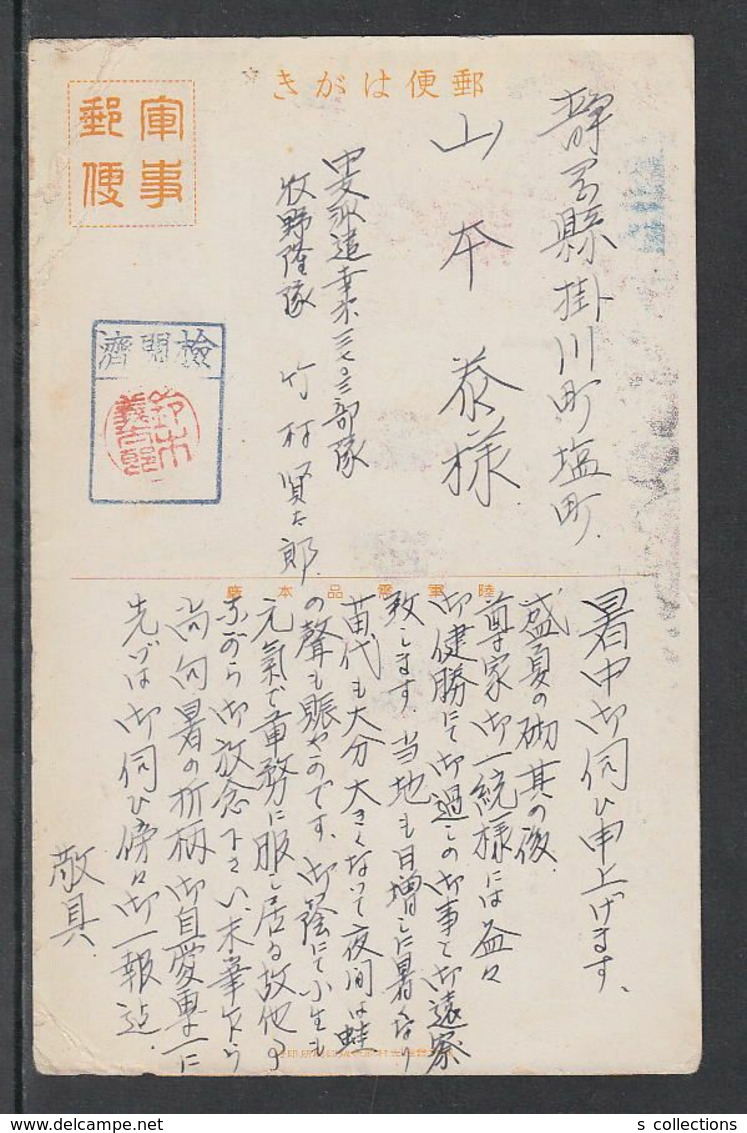 郵便はがき
軍事
郵便
検閲済
静岡縣掛川町塩町
山本 泰様
中支派遣
部隊
牧野隆隊 竹村賢太郎
陸軍需品本廠
暑中御伺ひ申上げます、
盛夏の砌其の後
尊家御一統様には益々
御健勝にて御過しの御事と御遠察
致します. 当地も日増しに暑くなり
苗代も大分大きくなつて夜間は蛙
の聲も賑やかです、御蔭にて小生も
元氣で軍務に服し居る故他事
乍ら御放念下さい、末筆乍ら
尚向暑の折柄御自愛専一に
先づは御伺ひ傍々御一報迄.
敬具
s collections